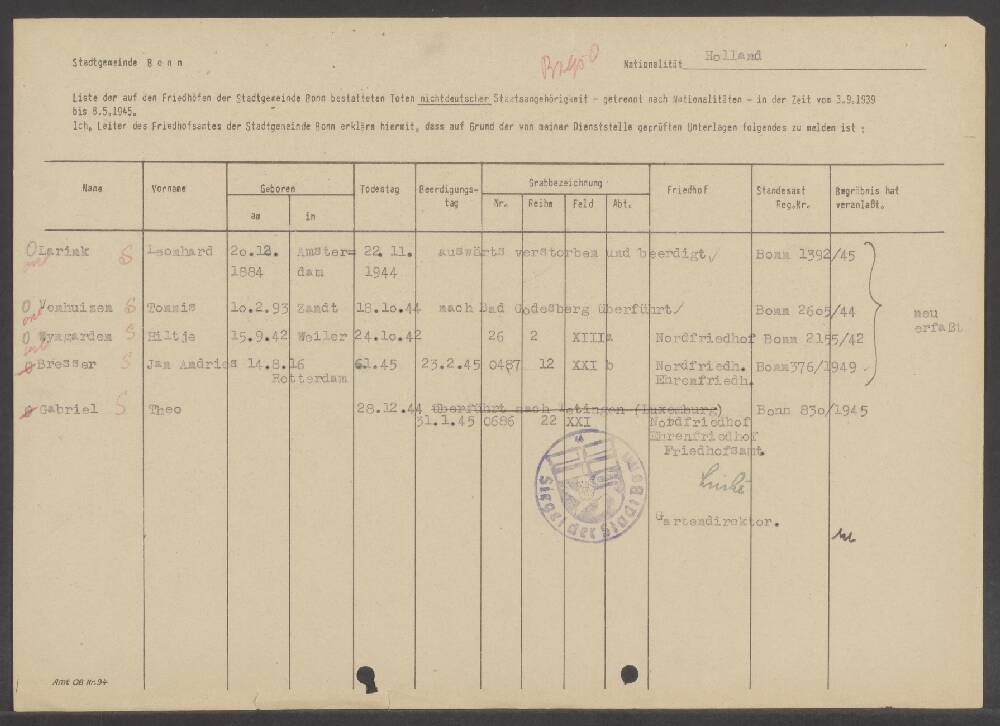 Stadtgemeinde Bonn
Nationalität Holland
Liste der auf den Friedhöfen der Stadtgemeinde Bonn bestatteten Toten nichtdeutscher Staatsangehörigkeit - getrennt nach Nationalitäten - in der Zeit vom 3.9.1939
bis 8.5.1945.
Ich, Leiter des Friedhofsamtes der Stadtgemeinde Bonn erkläre hiermit, dass auf Grund der von meiner Dienststelle geprüften Unterlagen folgendes zu melden ist :
Name Vorname Geboren Todestag Beerdigungs- Grabbezeichnung Friedhof Standesamt Begräbnis hat
am in tag Nr. Reihe Feld Abt. Reg.Nr. veranlaßt.
O Larink S Leonhard 20.12. Amster= 22.11. auswärts verstorben und beerdigt Bonn 1392/45
1884 dam 1944
O Vonhuizen S Tonnis 10.2.93 Zandt 18.10.44 nach Bad Godesberg überführt/ Bonn 2605/44
neu
erfaßt
O Wyngarden S Hiltje 15.9.42 Weiler 24.10.42 26 2 XIII a Nordfriedhof Bonn 2155/42
Bresser S Jan Andries 14.8.16 6.1.45 23.2.45 0487 12 XXI b Nordfriedh. Bonn 376/1949
Rotterdam Ehrenfriedh.
Gabriel S Theo 28.12.44 überführt nach (Luxemburg) Bonn 830/1945
31.1.45 0686 22 XXI Nordfriedhof
Ehrenfriedhof
Friedhofsamt.
Gartendirektor.
Siegel der Stadt Bonn
Amt OB Nr. 94